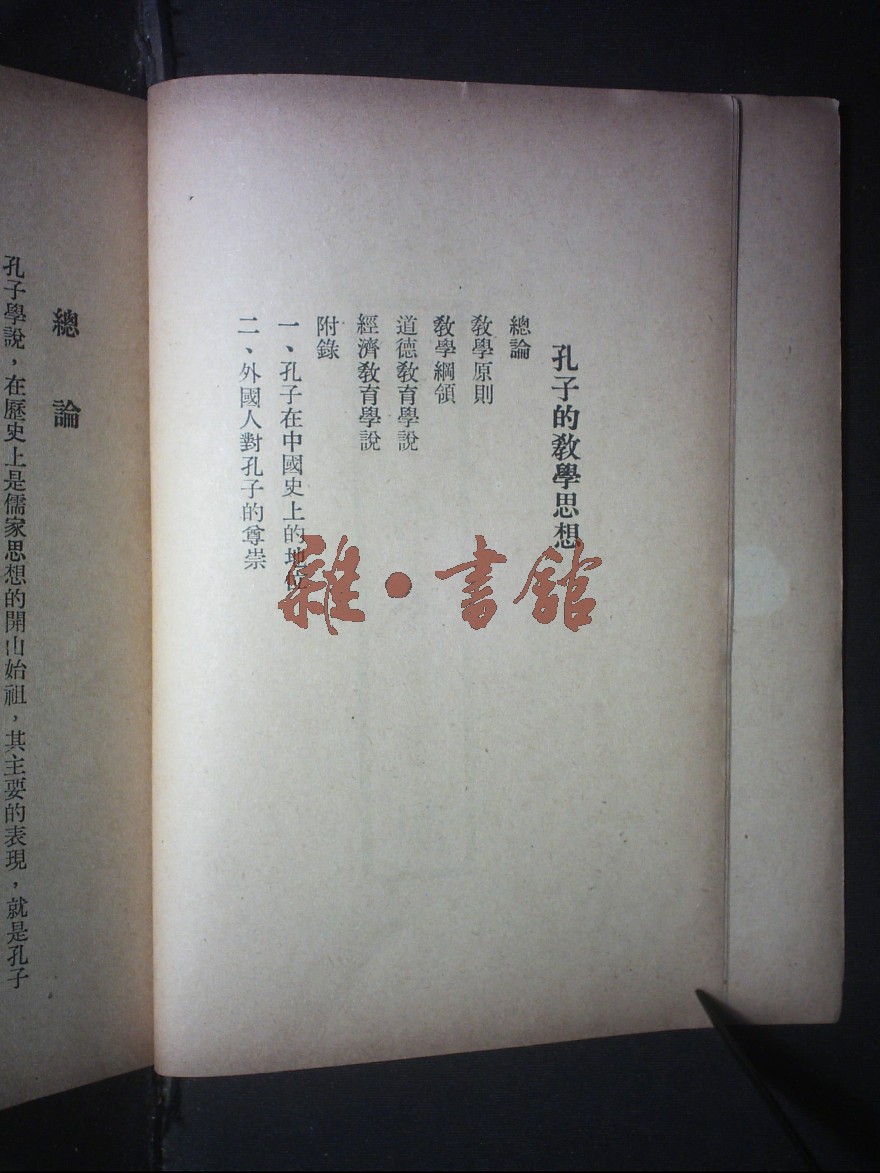 孔子的教學思想
總論
教學原則
教學綱領
道德教育學說
經濟教育學說
附錄
一、孔子在中國史上的地位
二、外國人對孔子的尊崇
總論
孔子學說，在歷史上是儒家思想的開山始祖，其主要的表現，就是孔子
雜·書館